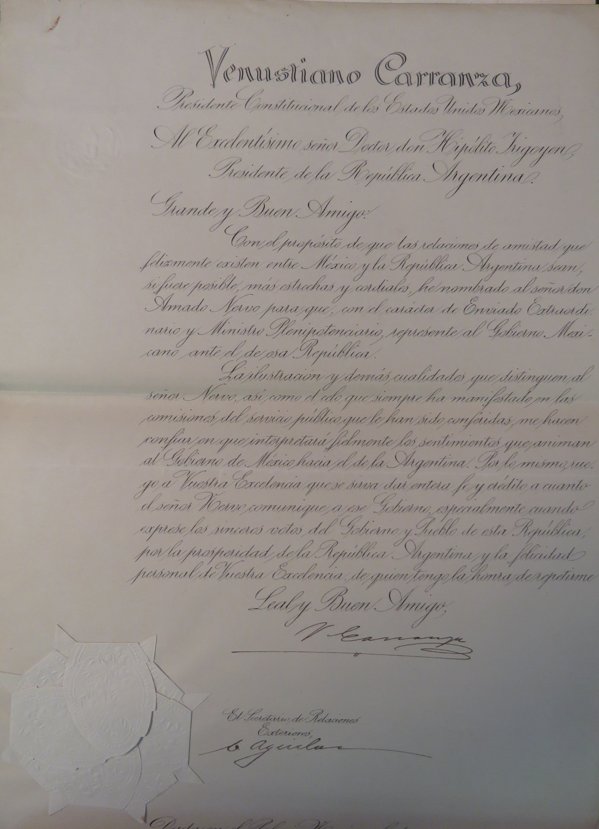 Venustiano Carranza,
Presidente Constitucional de los Estados Unidos Mexicanos,
Al Excelentísimo señor Doctor don Hipólito Irigoyen,
Presidente de la República Argentina.
Grande y Buen Amigo:
Con el propósito de que las relaciones de amistad que
felizmente existen entre México y la República Argentina sean,
si fuere posible, más estrechas y cordiales, he nombrado al señor don
Amado Nervo para que, con el carácter de Enviado Extraordi-
nario y Ministro Plenipotenciario, represente al Gobierno Mexi-
cano ante el de esa República.
La ilustración y demás cualidades que distinguen al
señor Nervo, así como el celo que siempre ha manifestado en las
comisiones del servicio público que le han sido conferidas, me hacen
confiar en que interpretará fielmente los sentimientos que animan
al Gobierno de México hacia el de la Argentina. Por lo mismo, rue-
go a Vuestra Excelencia que se sirva dar entera fe y crédito a cuanto
el señor Nervo comunique a ese Gobierno, especialmente cuando
exprese los sinceros votos del Gobierno y Pueblo de esta República,
por la prosperidad de la República Argentina y la felicidad
personal de Vuestra Excelencia, de quien tengo la honra de repetirme
Leal y Buen Amigo,
V Carranza
El Secretario de Relaciones
Exteriores,
C Aguilar